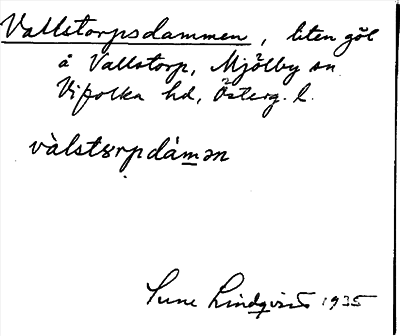 Vallstorpsdammen, liten göl
å Vallstorp, Mjölby sn
Vifolka hd, Österg. l.
vàlstɷrpdám̲ən
Sune Lindqvist 1935